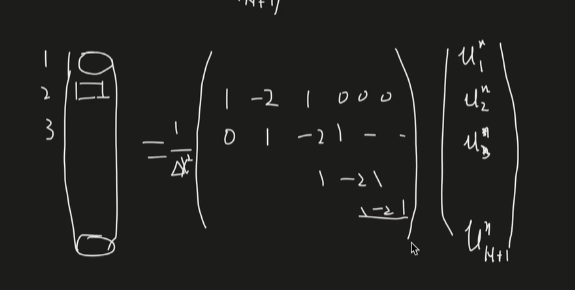 M+1)
1
2
3
= 1/Δx²
1 -2 1 0 0 0
0 1 -2 1 - -
1 -2 1
1 -2 1
u₁ⁿ
u₂ⁿ
u₃ⁿ
uⁿ_M+1